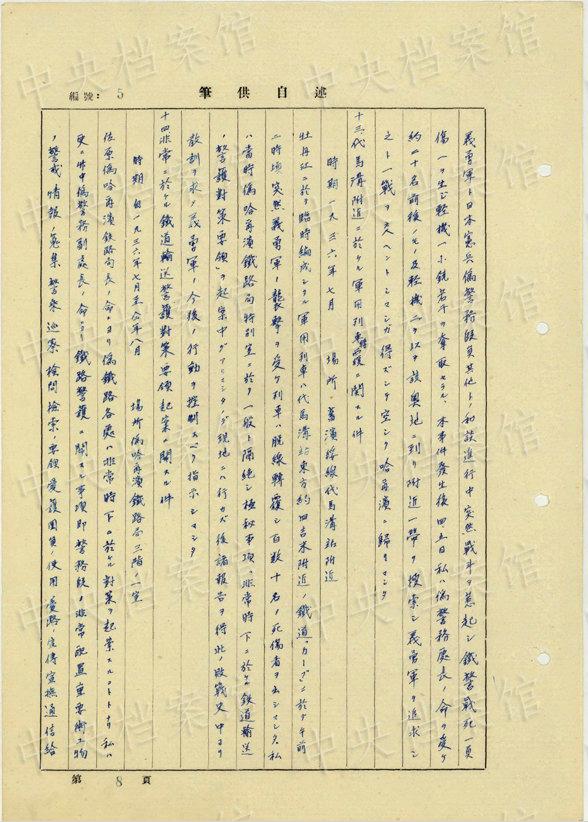 編號：5
筆供自述
義勇軍ト日本憲兵偽警務段員其他ト和談進行中突然戰斗ヲ惹起シ鐵警戰死一頁
傷一ヲ生ジ軽機一小銃若干ヲ奪取セラル、本事件發生後四五日私ハ偽警務處長ノ命ヲ受ケ
約二十名前後ノモノ及軽機二ヲ以テ該奧地ニ到リ附近一帶ヲ搜索シ義勇軍ヲ追求シ
之ト一戰ヲ交ヘントシマシタガ得ズシテ空シク哈爾濱ニ歸リマシタ
十三、代馬溝附近ニ於ケル軍用列車轉覆ニ関スル件
時期一九三六年七月 場所 舊濱綏線代馬溝站附近
牡丹江ニ於テ臨時編成シタル軍用列車ハ代馬溝站東方約四吉米附近ノ鐵道カーブニ於テ午前
二時頃突然義勇軍ノ襲擊ヲ受ケ列車ハ脱線轉覆シ百数十名ノ死傷者ヲ出シマシタ、私
ハ當時偽哈爾濱鐵路局特別室ニ於テ一般ト隔絶シ極秘事項、非常時下ニ於ケル鉄道輸送
ノ警護対策要領ヲ起案中デアリマシタノデ現地ニハ行カズ後諸報告ヲ得此ノ敗戰史中ヨリ
教訓ヲ求メ義勇軍ノ今後ノ行動ヲ控制スベク指示シマシタ
十四、非常ニ於ケル鐵道輸送警護対策要領起案ニ関スル件
時期 自一九三六年七月至仝年八月 場所偽哈爾濱鐵路局三階ノ一室
佐原偽哈爾濱鉄路局長ノ命ニヨリ偽鐵路各處ハ非常時下ニ於ケル対策ヲ起案スルコトトナリ私ハ
更ニ 偽警務副處長ノ命ニヨリ鐵路警護ニ関スル事項即警務段ノ非常配置重要術工物
ノ警戒情報ノ蒐集警乘巡察検問検索ノ要領愛護團員ノ使用愛路ノ宣傳宣撫通信給
第 8 頁
中央档案馆